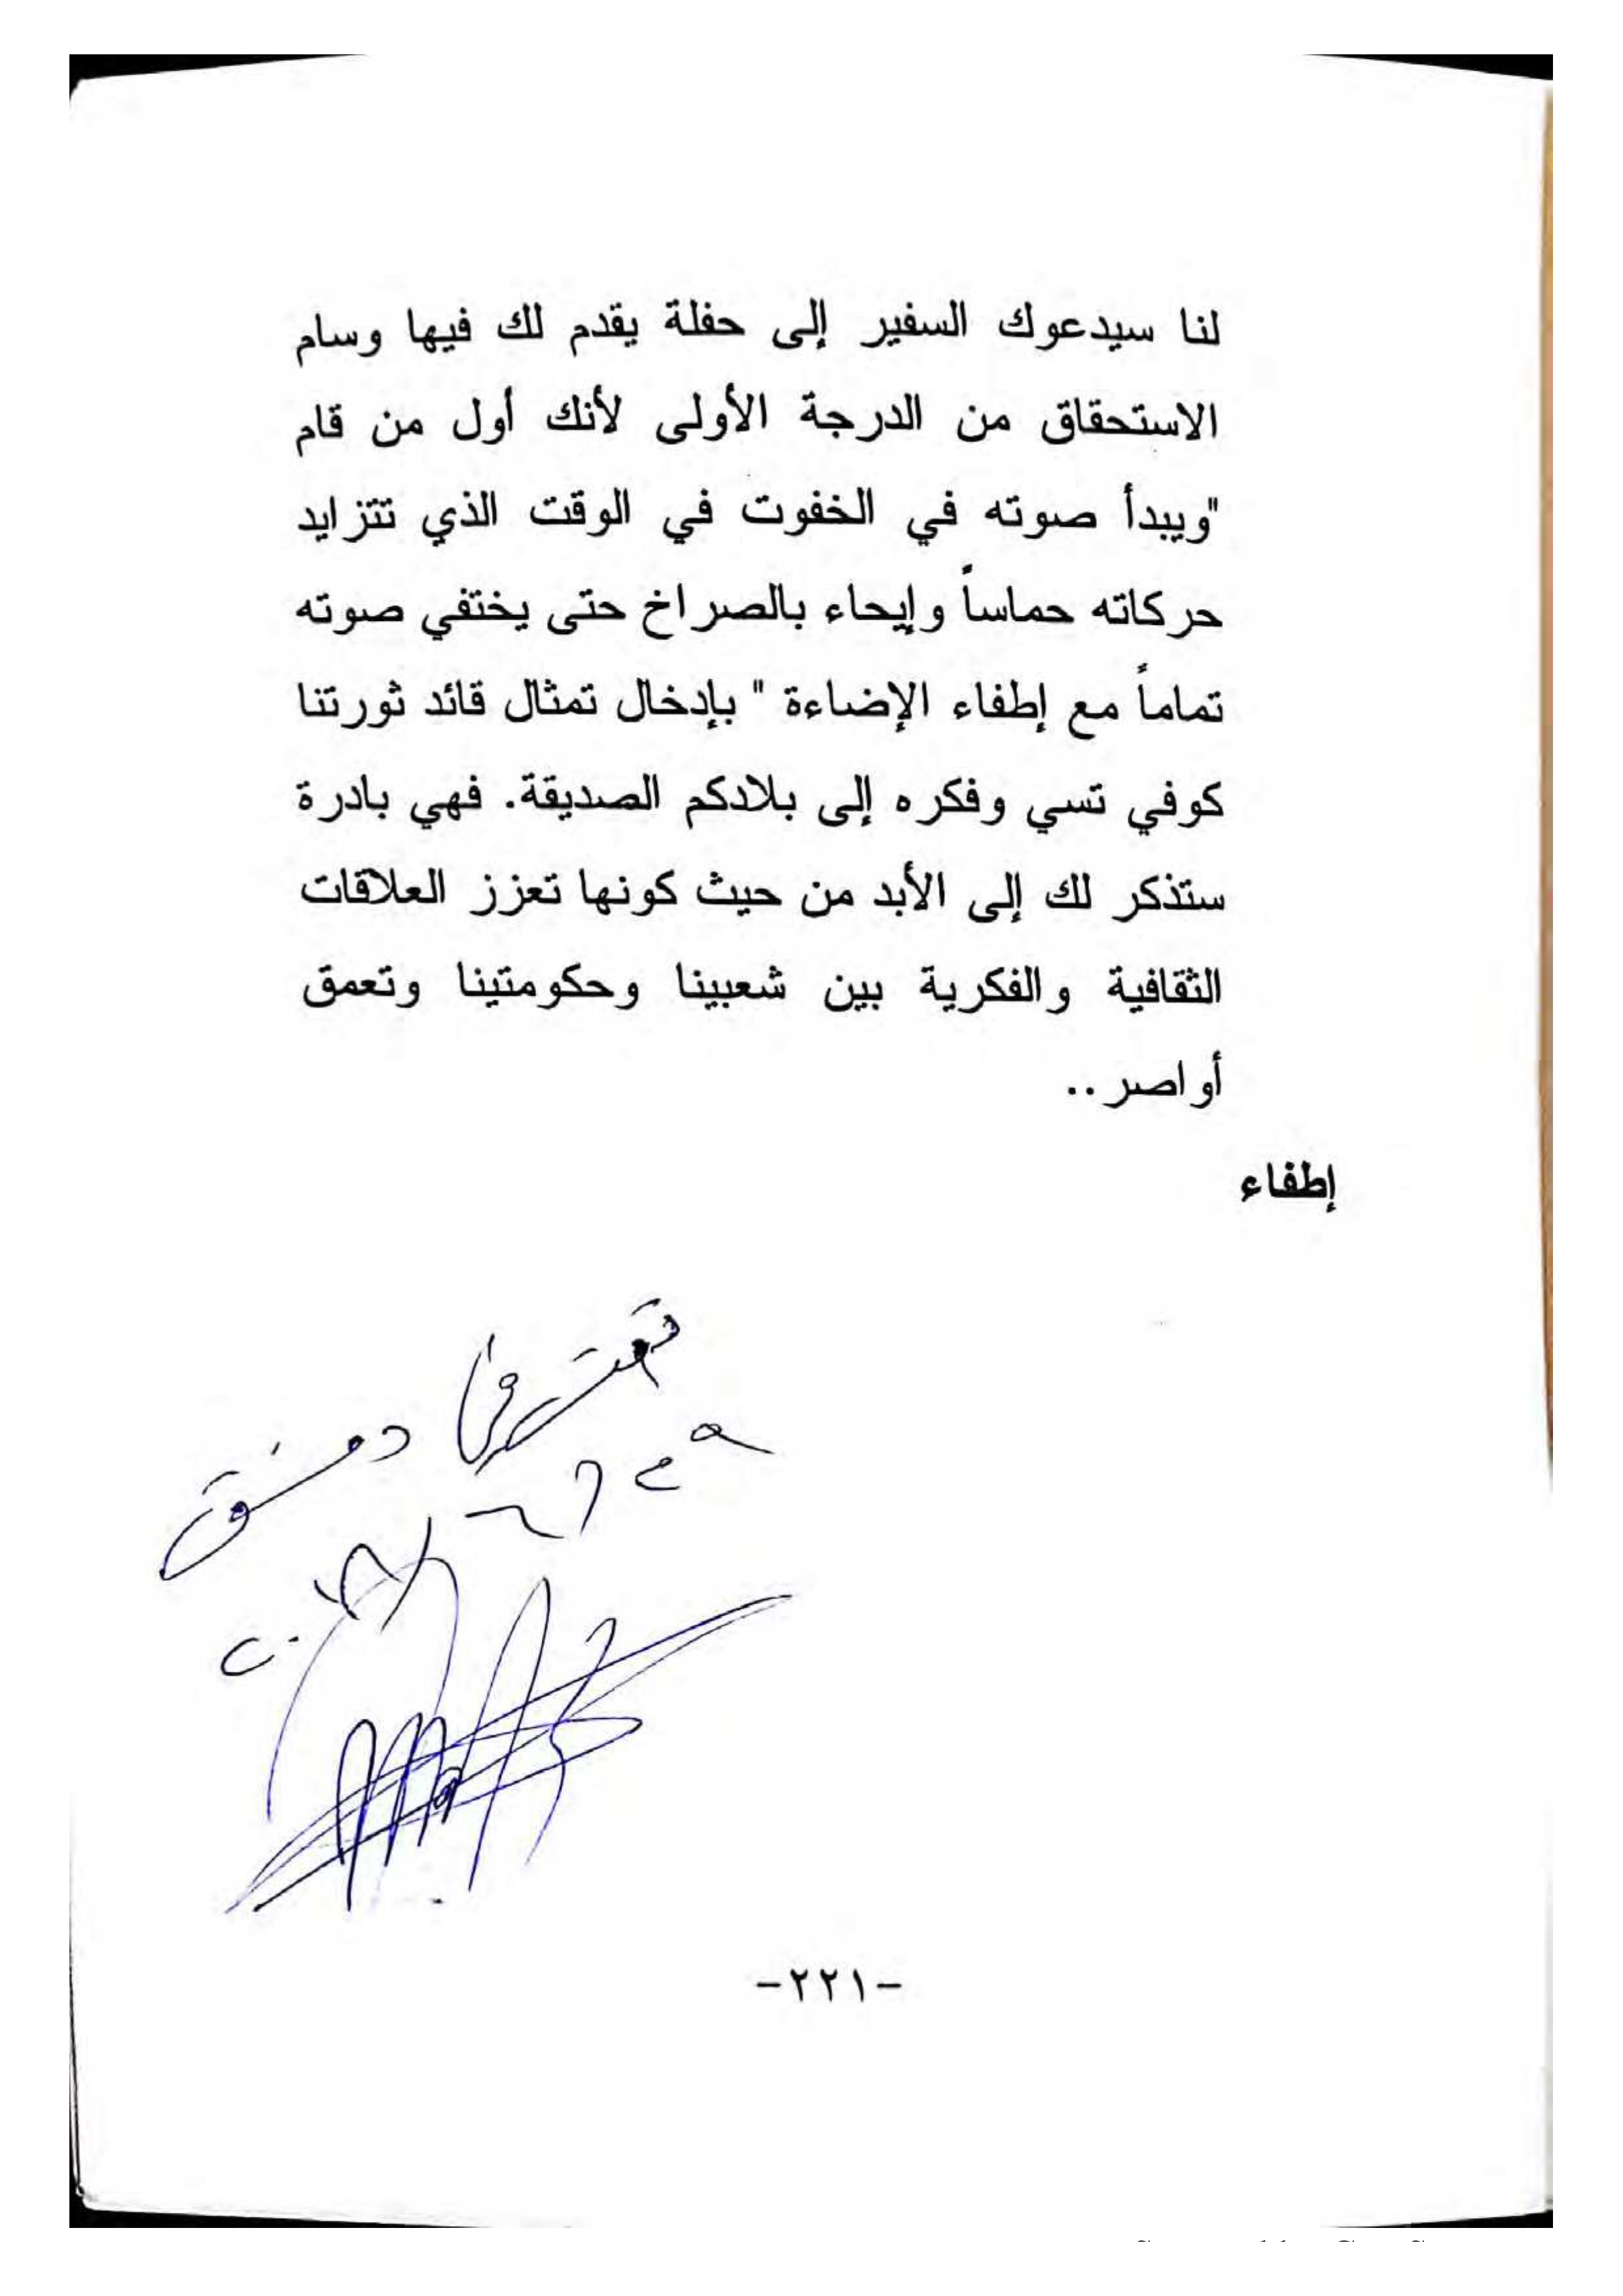 لنا سيدعوك السفير إلى حفلة يقدم لك فيها وسام
الاستحقاق من الدرجة الأولى لأنك أول من قام
"ويبدأ صوته في الخفوت في الوقت الذي تتزايد
حركاته حماساً وإيحاء بالصراخ حتى يختفي صوته
تماماً مع إطفاء الإضاءة " بإدخال تمثال قائد ثورتنا
كوفي تسي وفكره إلى بلادكم الصديقة. فهي بادرة
ستذكر لك إلى الأبد من حيث كونها تعزز العلاقات
الثقافية والفكرية بين شعبينا وحكومتينا وتعمق
أواصر..
إطفاء
دمشق
-٢٢١-